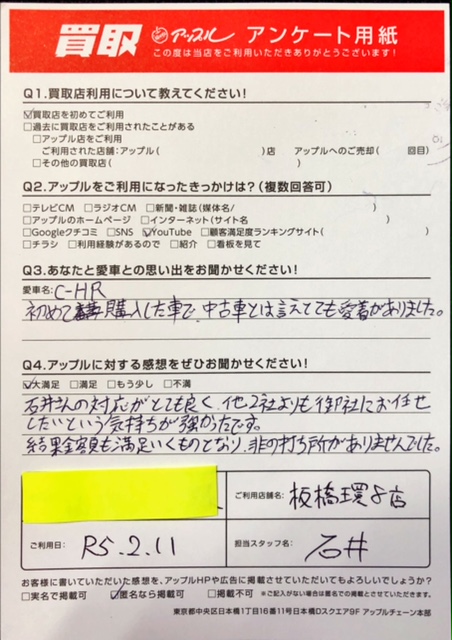 買取 アップル アンケート用紙
この度は当店をご利用いただきありがとうございます!
Q1.買取店利用について教えてください!
☑買取店を初めてご利用
□過去に買取店をご利用されたことがある
□アップル店をご利用
ご利用された店舗:アップル( )店 アップルへのご売却( 回目)
□その他の買取店( )
Q2.アップルをご利用になったきっかけは?(複数回答可)
□テレビCM □ラジオCM □新聞・雑誌(媒体名/ )
□アップルのホームページ □インターネット(サイト名 )
□Googleクチコミ □SNS ☑YouTube □顧客満足度ランキングサイト( )
□チラシ □利用経験があるので □紹介 □看板を見て
Q3.あなたと愛車との思い出をお聞かせください!
愛車名:C-HR
初めて購入した車で、中古車とは言えとても愛着がありました。
Q4.アップルに対する感想をぜひお聞かせください!
☑大満足 □満足 □もう少し □不満
石井さんの対応がとても良く、他2社よりも御社にお任せ
したいという気持ちが強かったです。
結果金額も満足いくものとなり、非の打ち所がありませんでした。
ご利用店舗名: 板橋環8店
ご利用日: R5.2.11 担当スタッフ名: 石井
お客様に書いていただいた感想を、アップルHPや広告に掲載させていただいてもよろしいでしょうか?
□実名で掲載可 ☑匿名なら掲載可 □掲載不可 ※ご記入がない場合は匿名での掲載とさせていただきます。
東京都中央区日本橋1丁目16番11号日本橋Dスクエア9F アップルチェーン本部